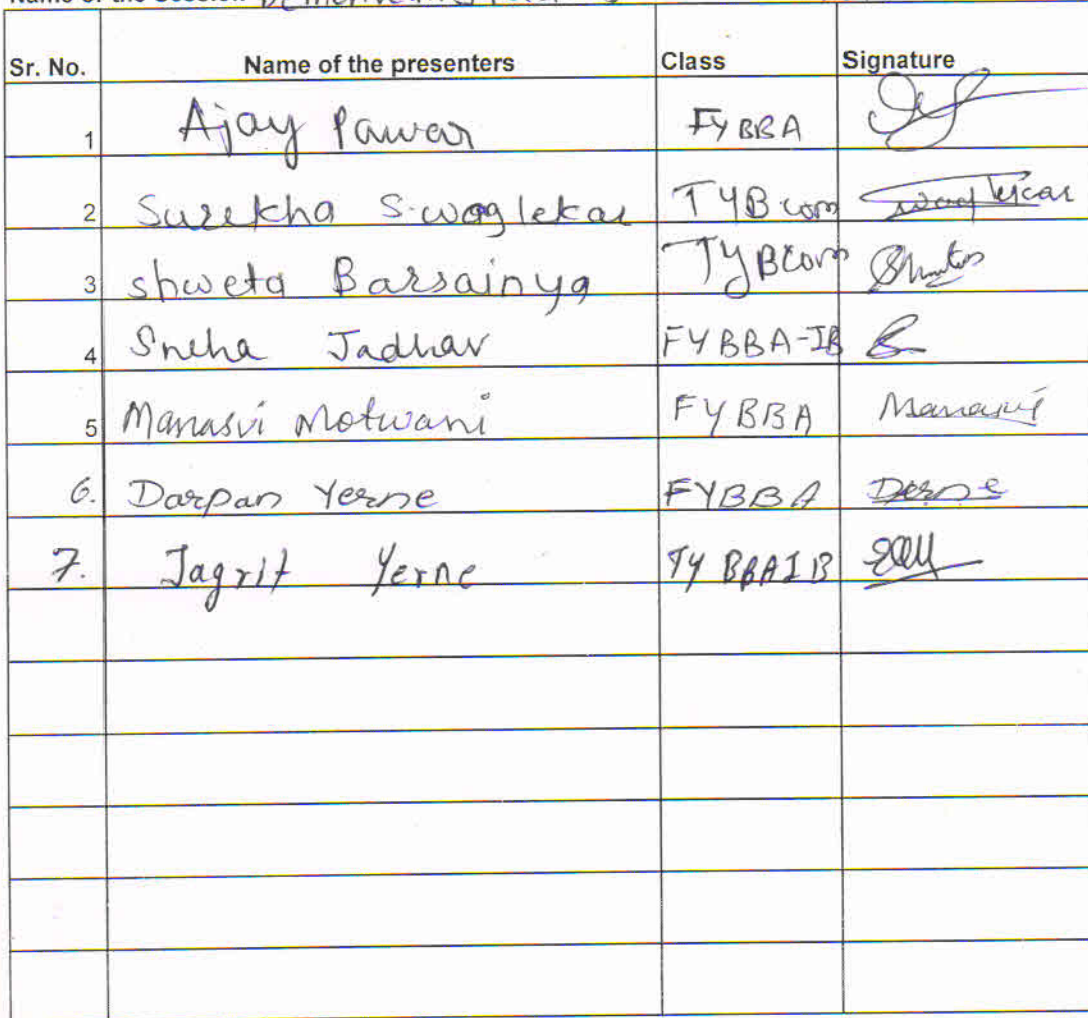 Name of the Session
Sr. No. Name of the presenters Class Signature
1 Ajay Pawar FYBBA
2 Surekha S. waglekar TYBcom waglekar
3 shweta Barsainya TYBcom Shweta
4 Sneha Jadhav FYBBA-IB
5 Manasvi Motwani FYBBA Manasvi
6. Darpan Yerne FYBBA Yerne
7. Jagrit Yerne TY BBAIB